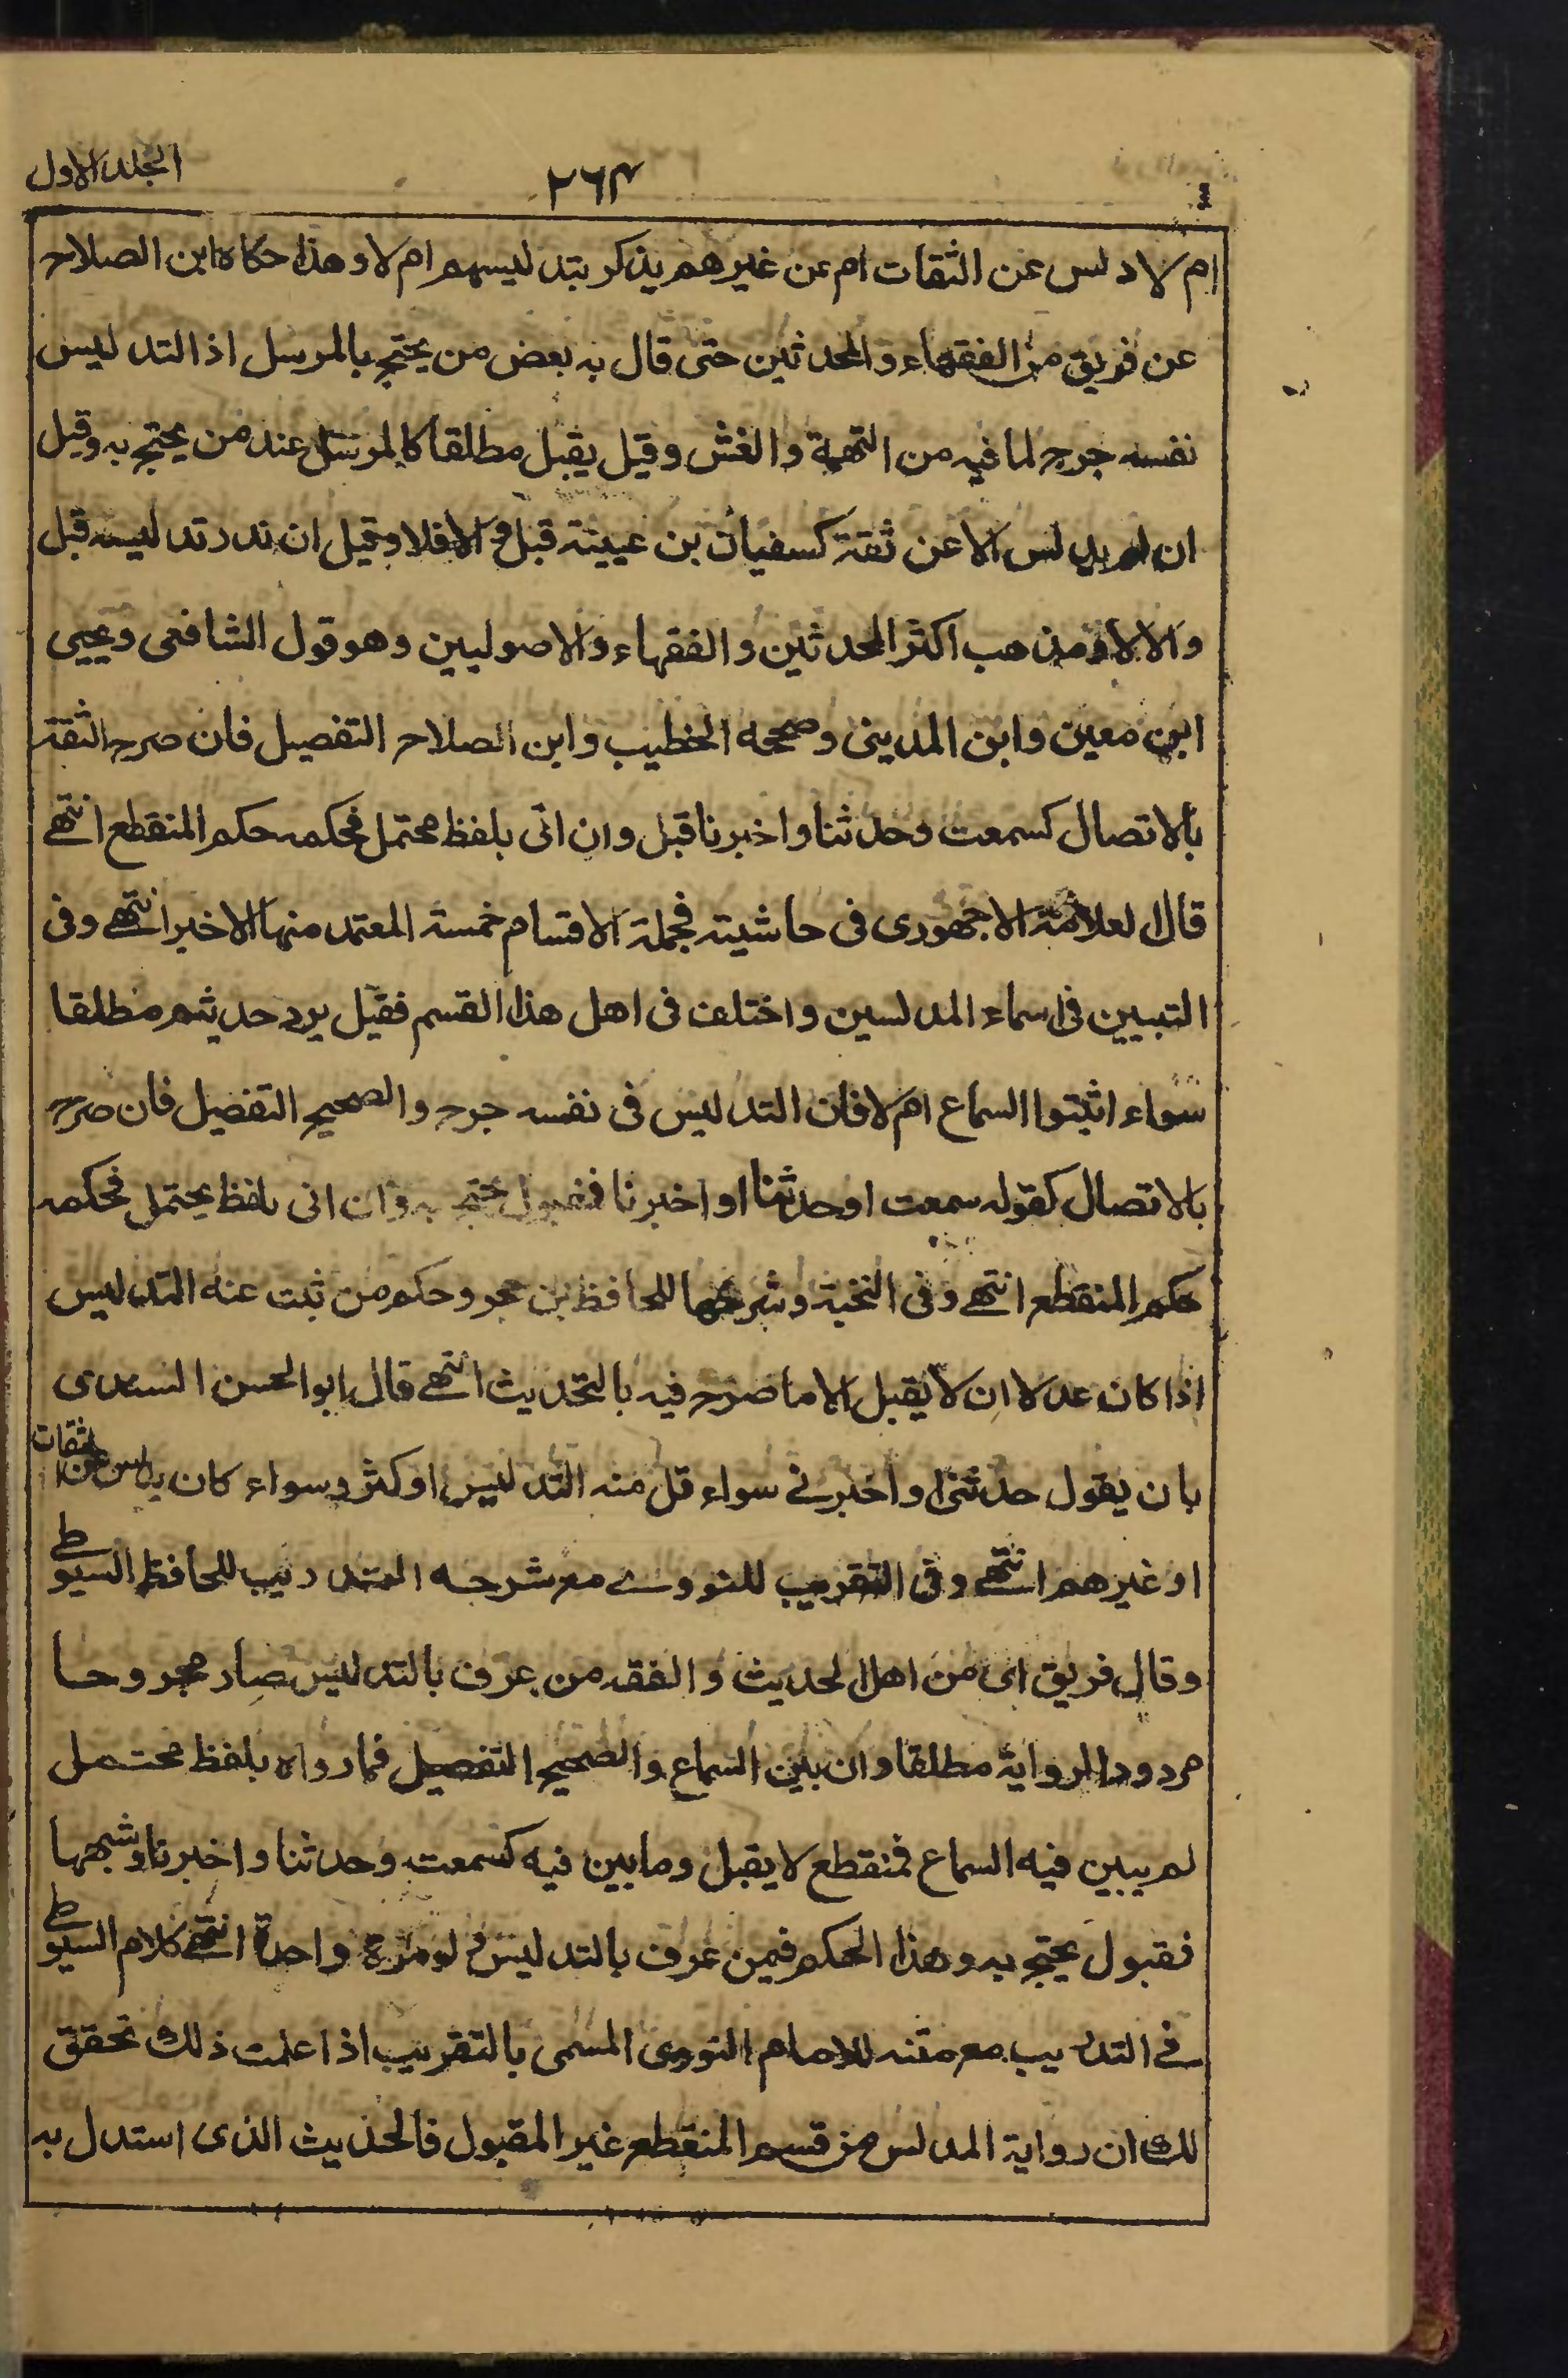 الجلد الاول
٢٦٤
ام لا دلس عن الثقات ام عن غيرهم يذكر بتدليسهم ام لا وهذا حكاه ابن الصلاح
عن فريق من الفقهاء والمحدثين حتى قال به بعض من يحتج بالمرسل اذ التدليس
نفسه جرح لما فيه من التهمة والغش وقيل يقبل مطلقا كالمرسل عند من يحتج به وقيل
ان لم يدلس الا عن ثقة كسفيان بن عيينة قبل والا فلا وقيل ان ندر تدليسه قبل
والا لا ومذهب اكثر المحدثين والفقهاء والاصوليين وهو قول الشافعى ويحيى
ابن معين وابن المدينى وصححه الخطيب وابن الصلاح التفصيل فان صرح الثقة
بالاتصال كسمعت وحدثنا واخبرنا قبل وان اتى بلفظ محتمل فحكمه حكم المنقطع انتهے
قال لعلامة الاجهورى فى حاشيته فجملة الاقسام خمسة المعتمد منها الاخير انتهے وفى
التبيين فى اسماء المدلسين واختلف فى اهل هذا القسم فقيل يرد حديثهم مطلقا
سواء اثبتوا السماع ام لا فان التدليس فى نفسه جرح والصحيح التفصيل فان صرح
بالاتصال كقوله سمعت او حدثنا او اخبرنا فمقبول يحتج به وان اتى بلفظ يحتمل فحكمه
حكم المنقطع انتهے وفى النخبة وشرحها للحافظ بن حجر وحكم من ثبت عنه التدليس
اذا كان عدلا ان لا يقبل الا ما صرح فيه بالتحديث انتهے قال ابو الحسن السندى
بان يقول حدثنى واخبرنے سواء قل منه التدليس او كثر وسواء كان يدلس عن الثقات
او غيرهم انتهے وفى التقريب للنووے مع شرحه التدريب للحافظ السيوطے
وقال فريق اى من اهل لحديث والفقه من عرف بالتدليس صار مجروحا
مردود الرواية مطلقا وان بين السماع والصحيح التفصيل فما رواه بلفظ محتمل
لم يبين فيه السماع فمنقطع لا يقبل وما بين فيه كسمعت وحدثنا واخبرنا وشبهها
فقبول يحتج به وهذا الحكم فيمن عرف بالتدليس و لو مرة واحدة انتهے كلام السيوطے
فے التدريب مع متنه للامام النووى المسمى بالتقريب اذا علمت ذلك تحقق
لك ان رواية المدلس من قسم المنقطع غير المقبول فالحديث الذى استدل به